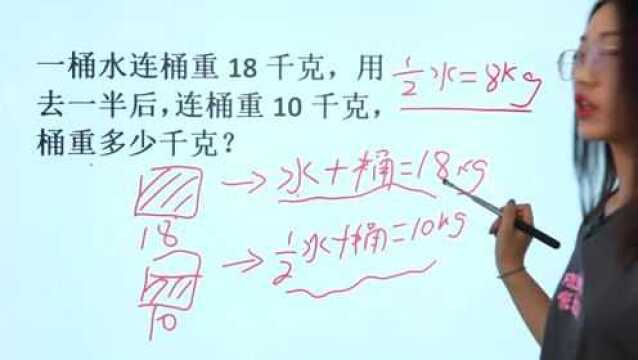 一桶水连桶重 18 千克，用
去一半后，连桶重 10 千克，
桶重多少千克？
1/2水=8kg
→水+桶=18kg
18
→1/2水+桶=10kg
10